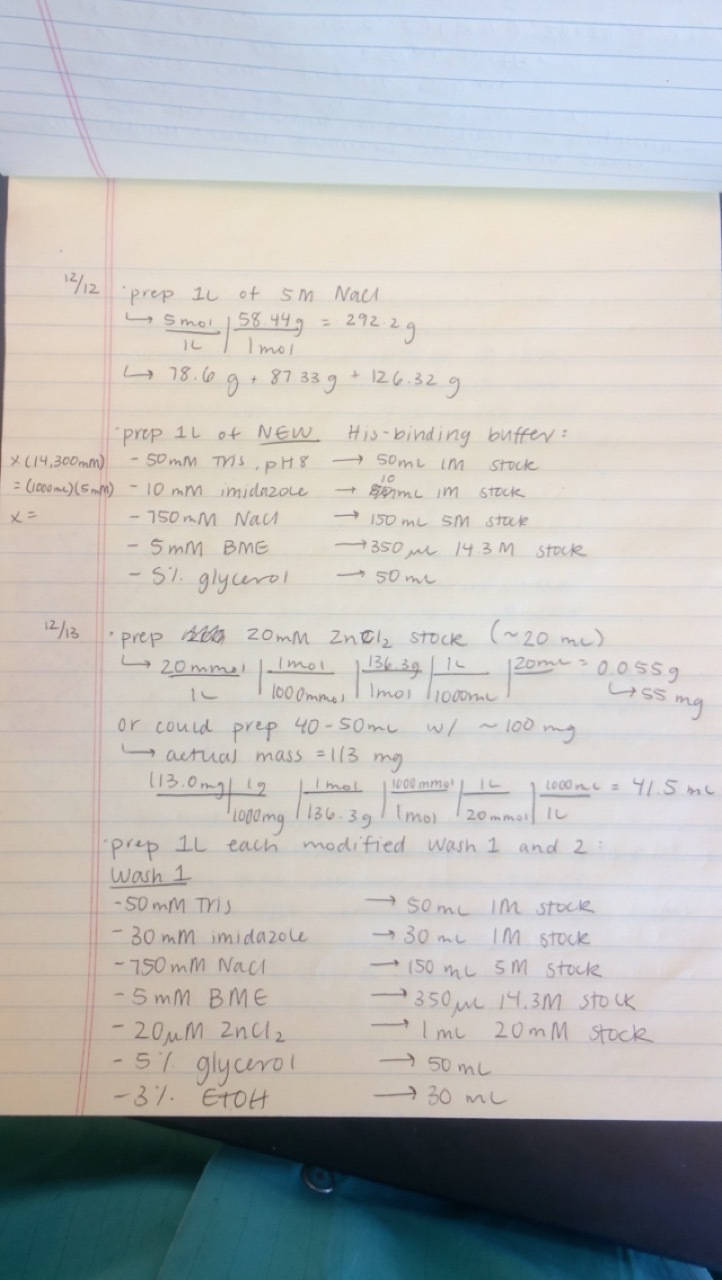 12/12 · prep 1L of 5M NaCl
↳ 5mol/1L | 58.44g/1mol = 292.2g
↳ 78.6 g + 87.33 g + 126.32 g
· prep 1L of NEW His-binding buffer:
x(14,300mM) - 50mM Tris, pH8 → 50mL 1M stock
=(1000mL)(5mM) - 10 mM imidazole → 10 mL 1M stock
x= - 750mM NaCl → 150 mL 5M stock
- 5mM BME → 350 μL 14.3 M stock
- 5% glycerol → 50 mL
12/13 · prep 20mM ZnCl₂ stock (~20 mL)
↳ 20mmol/1L | 1mol/1000mmol | 136.3g/1mol | 1L/1000mL | 20mL = 0.055g
↳ 55 mg
or could prep 40-50mL w/ ~100 mg
↳ actual mass = 113 mg
113.0mg | 1g/1000mg | 1mol/136.3g | 1000mmol/1mol | 1L/20mmol | 1000mL/1L = 41.5 mL
· prep 1L each modified wash 1 and 2:
Wash 1
- 50mM Tris → 50mL 1M stock
- 30mM imidazole → 30 mL 1M stock
- 750mM NaCl → 150 mL 5M stock
- 5mM BME → 350μL 14.3M stock
- 20μM ZnCl₂ → 1mL 20mM stock
- 5% glycerol → 50 mL
- 3% EtOH → 30 mL